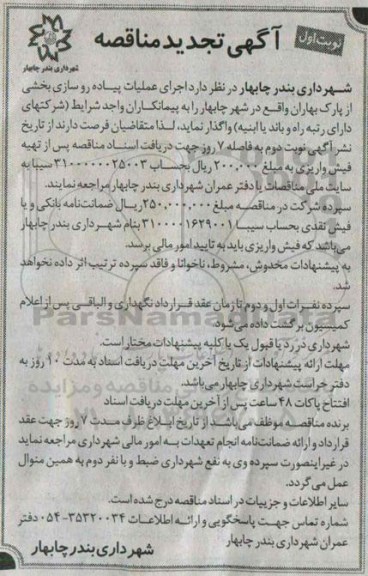 نوبت اول
آگهی تجدید مناقصه
شهرداری بندر چابهار
شهرداری بندر چابهار در نظر دارد اجرای عملیات پیاده رو سازی بخشی
از پارک بهاران واقع در شهر چابهار را به پیمانکاران واجد شرایط (شرکتهای
دارای رتبه راه و باند یا ابنیه) واگذار نماید، لذا متقاضیان فرصت دارند از تاریخ
نشر آگهی نوبت دوم به فاصله ۷ روز جهت دریافت اسناد مناقصه پس از تهیه
فیش واریزی به مبلغ ۲۰۰,۰۰۰ ریال بحساب ۳۱۰۰۰۰۰۰۲۵۰۰۳ سیبا به
سایت ملی مناقصات یا دفتر عمران شهرداری بندر چابهار مراجعه نمایند.
سپرده شرکت در مناقصه مبلغ ۲۵۰,۰۰۰,۰۰۰ ریال ضمانت‌نامه بانکی و یا
فیش نقدی بحساب سیبا ۳۱۰۰۰۰۱۶۲۹۰۰۱ بنام شهرداری بندر چابهار
می‌باشد که فیش واریزی باید به تایید امور مالی برسد.
به پیشنهادات مخدوش، مشروط، ناخوانا و فاقد سپرده ترتیب اثر داده نخواهد
شد.
سپرده نفرات اول و دوم تا زمان عقد قرارداد نگهداری و الباقی پس از اعلام
کمیسیون برگشت داده می‌شود.
شهرداری در رد یا قبول یک یا کلیه پیشنهادات مختار است.
مهلت ارائه پیشنهادات از تاریخ آخرین مهلت دریافت اسناد به مدت ۱۰ روز به
دفتر حراست شهرداری چابهار می‌باشد.
افتتاح پاکات ۴۸ ساعت پس از آخرین مهلت دریافت اسناد
برنده مناقصه موظف می‌باشد از تاریخ ابلاغ ظرف مدت ۷ روز جهت عقد
قرارداد و ارائه ضمانت‌نامه انجام تعهدات به امور مالی شهرداری مراجعه نماید
در غیر اینصورت سپرده وی به نفع شهرداری ضبط و با نفر دوم به همین منوال
عمل می‌گردد.
سایر اطلاعات و جزییات در اسناد مناقصه درج شده است.
شماره تماس جهت پاسخگویی و ارائه اطلاعات ۳۵۳۲۰۰۳۴-۰۵۴ دفتر
عمران شهرداری بندر چابهار
شهرداری بندر چابهار
ParsNamadData